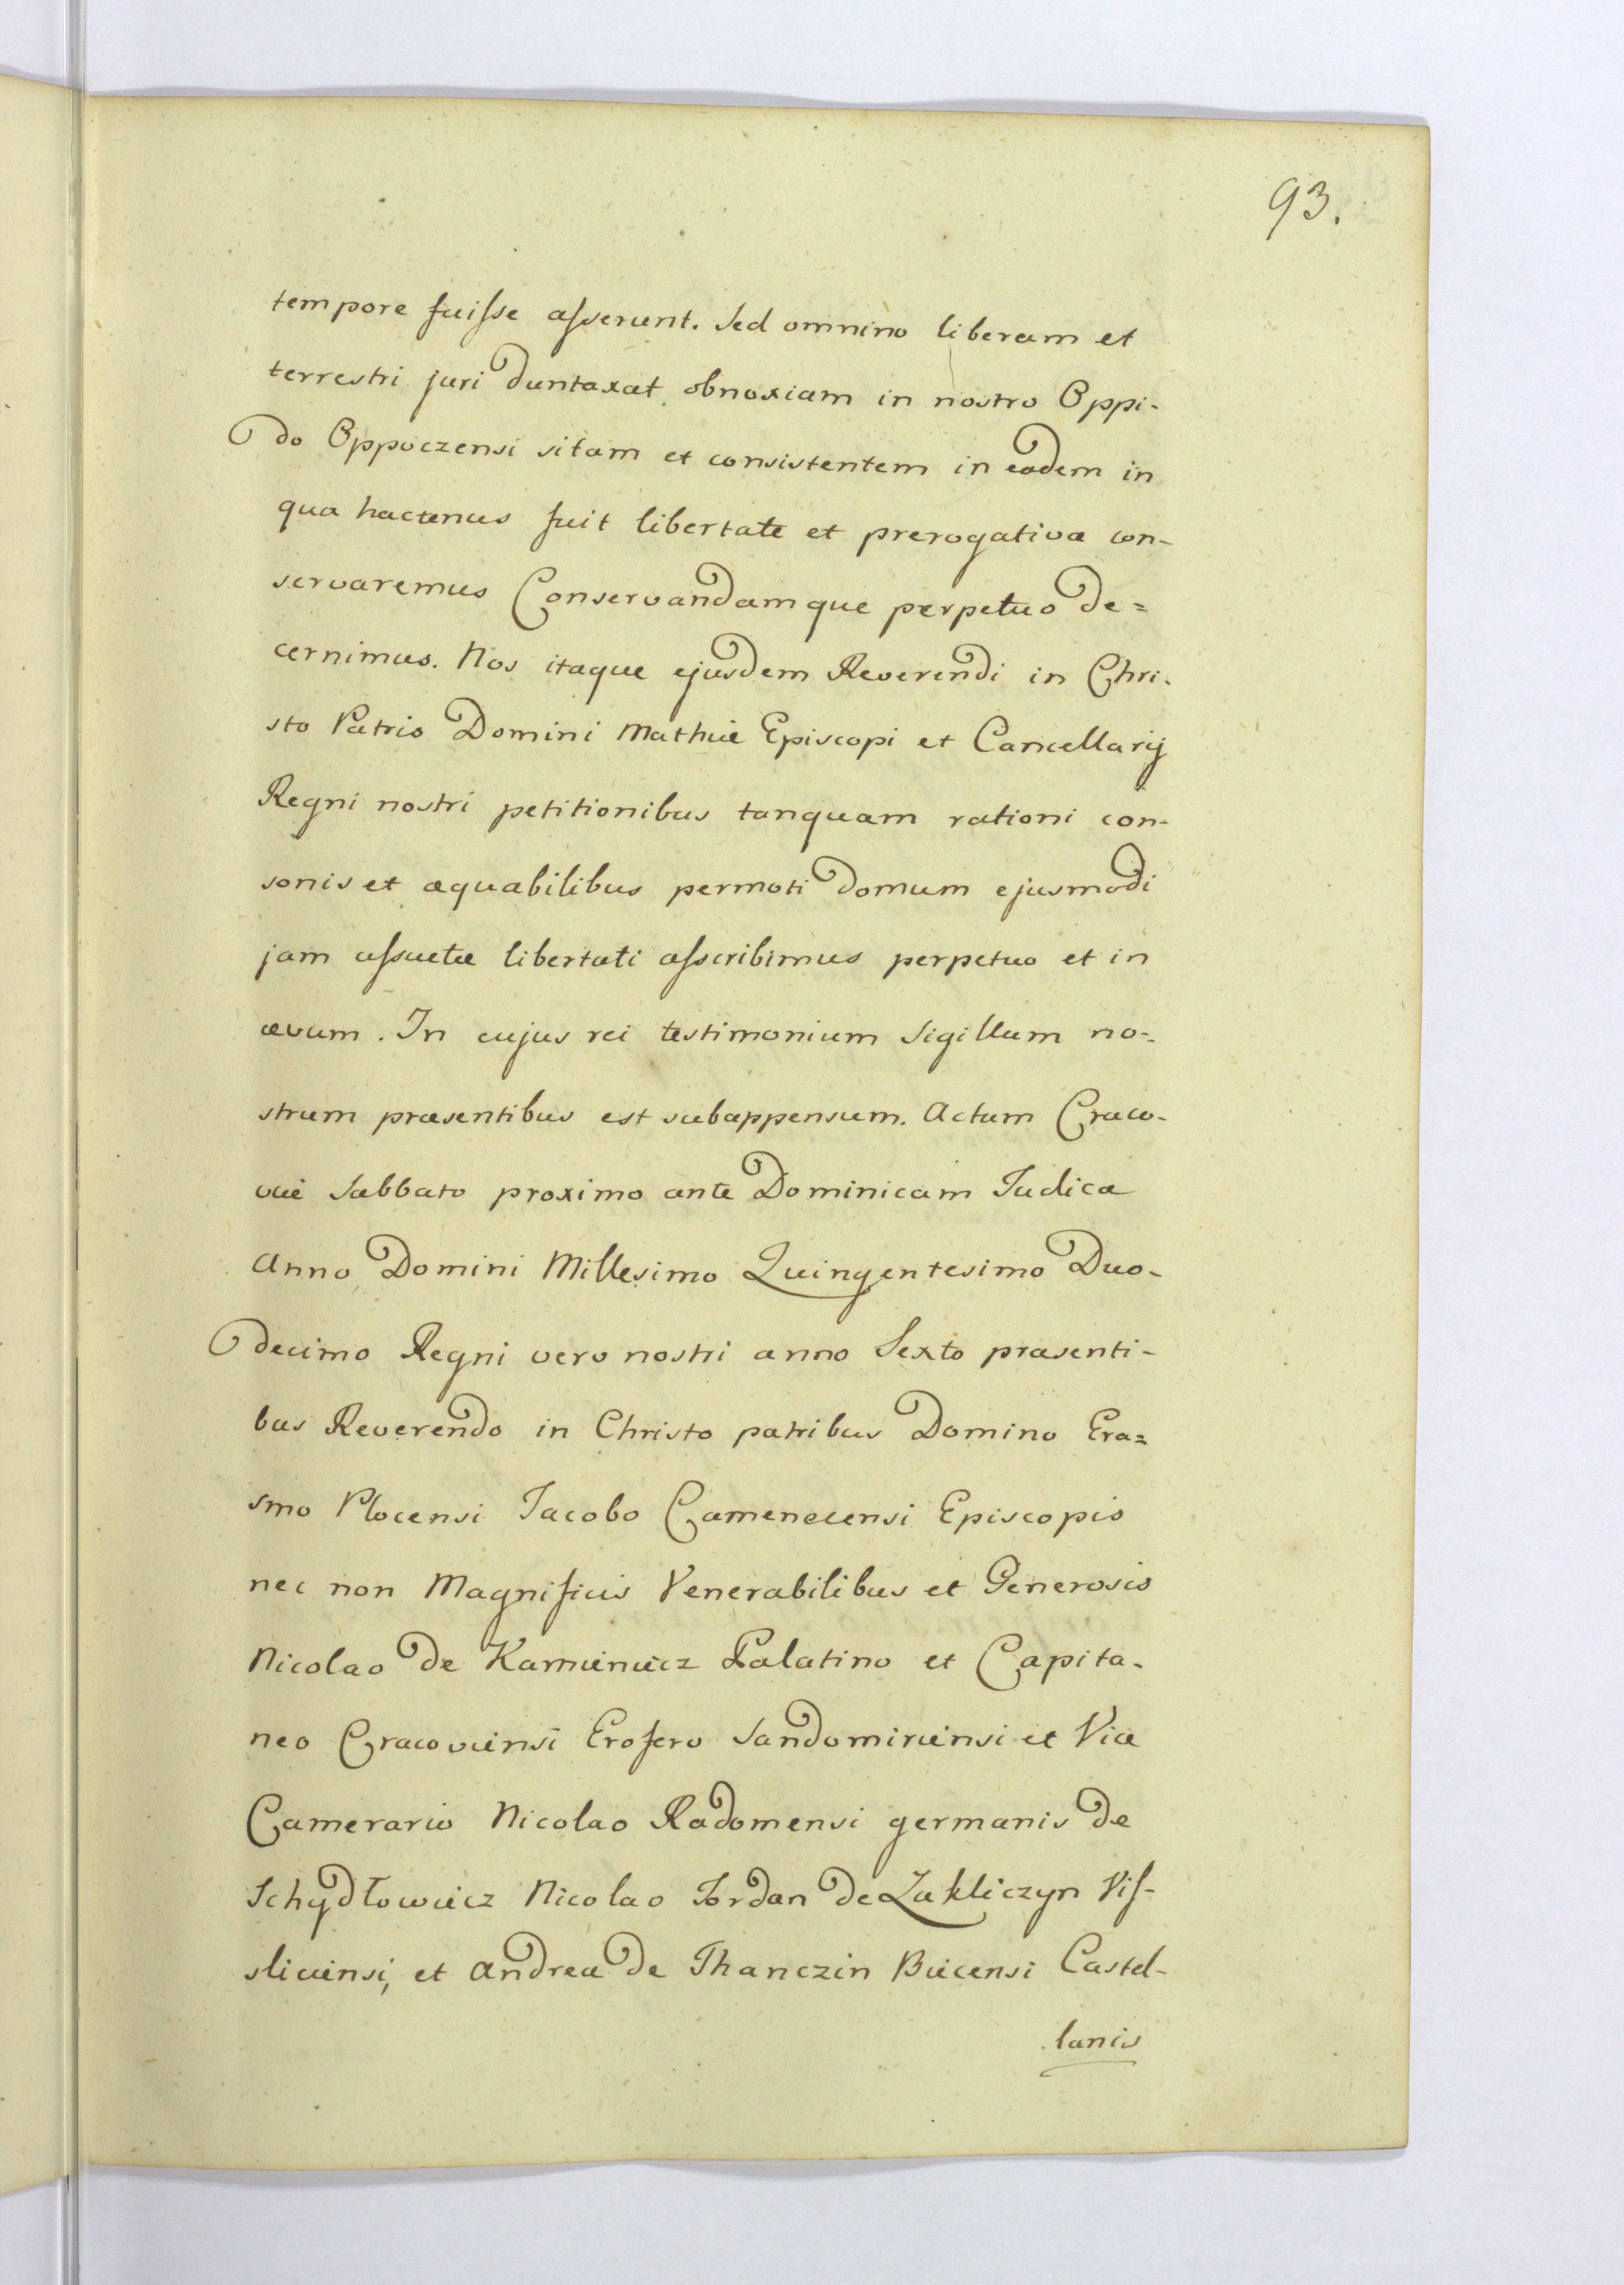 93.
tempore fuiſse aſserunt. Sed omnino liberam et
terrestri juri duntaxat obnoxiam in nostro Oppi-
do Oppoczensi sitam et consistentem in eadem in
qua hactenus fuit libertate et prerogativa con-
servaremus Conservandamque perpetuo de=
cernimus. Nos itaque ejusdem Reverendi in Chri-
sto Patris Domini Mathiæ Episcopi et Cancellarij
Regni nostri petitionibus tanquam rationi con-
sonis et æquabilibus permoti domum ejusmodi
jam aſsuetæ libertati aſscribimus perpetuo et in
ævum. In cujus rei testimonium Sigillum no-
strum præsentibus est subappensum. Actum Craco-
viæ Sabbato proximo ante Dominicam Judica
Anno Domini Millesimo Quingentesimo Duo-
decimo Regni vero nostri anno Sexto præsenti-
bus Reverendo in Christo patribus Domino Era=
smo Plocensi Jacobo Camenecensi Episcopis
nec non Magnificis Venerabilibus et Generosis
Nicolao de Kamieniecz Palatino et Capita-
neo Cracoviensi Ensifero Sandomiriensi et Vice
Camerario Nicolao Radomensi germanis de
Schydłowiecz Nicolao Jordan de Zakliczyn Viſ-
sliciensi, et Andrea de Thanczin Biecensi Castel-
lanis